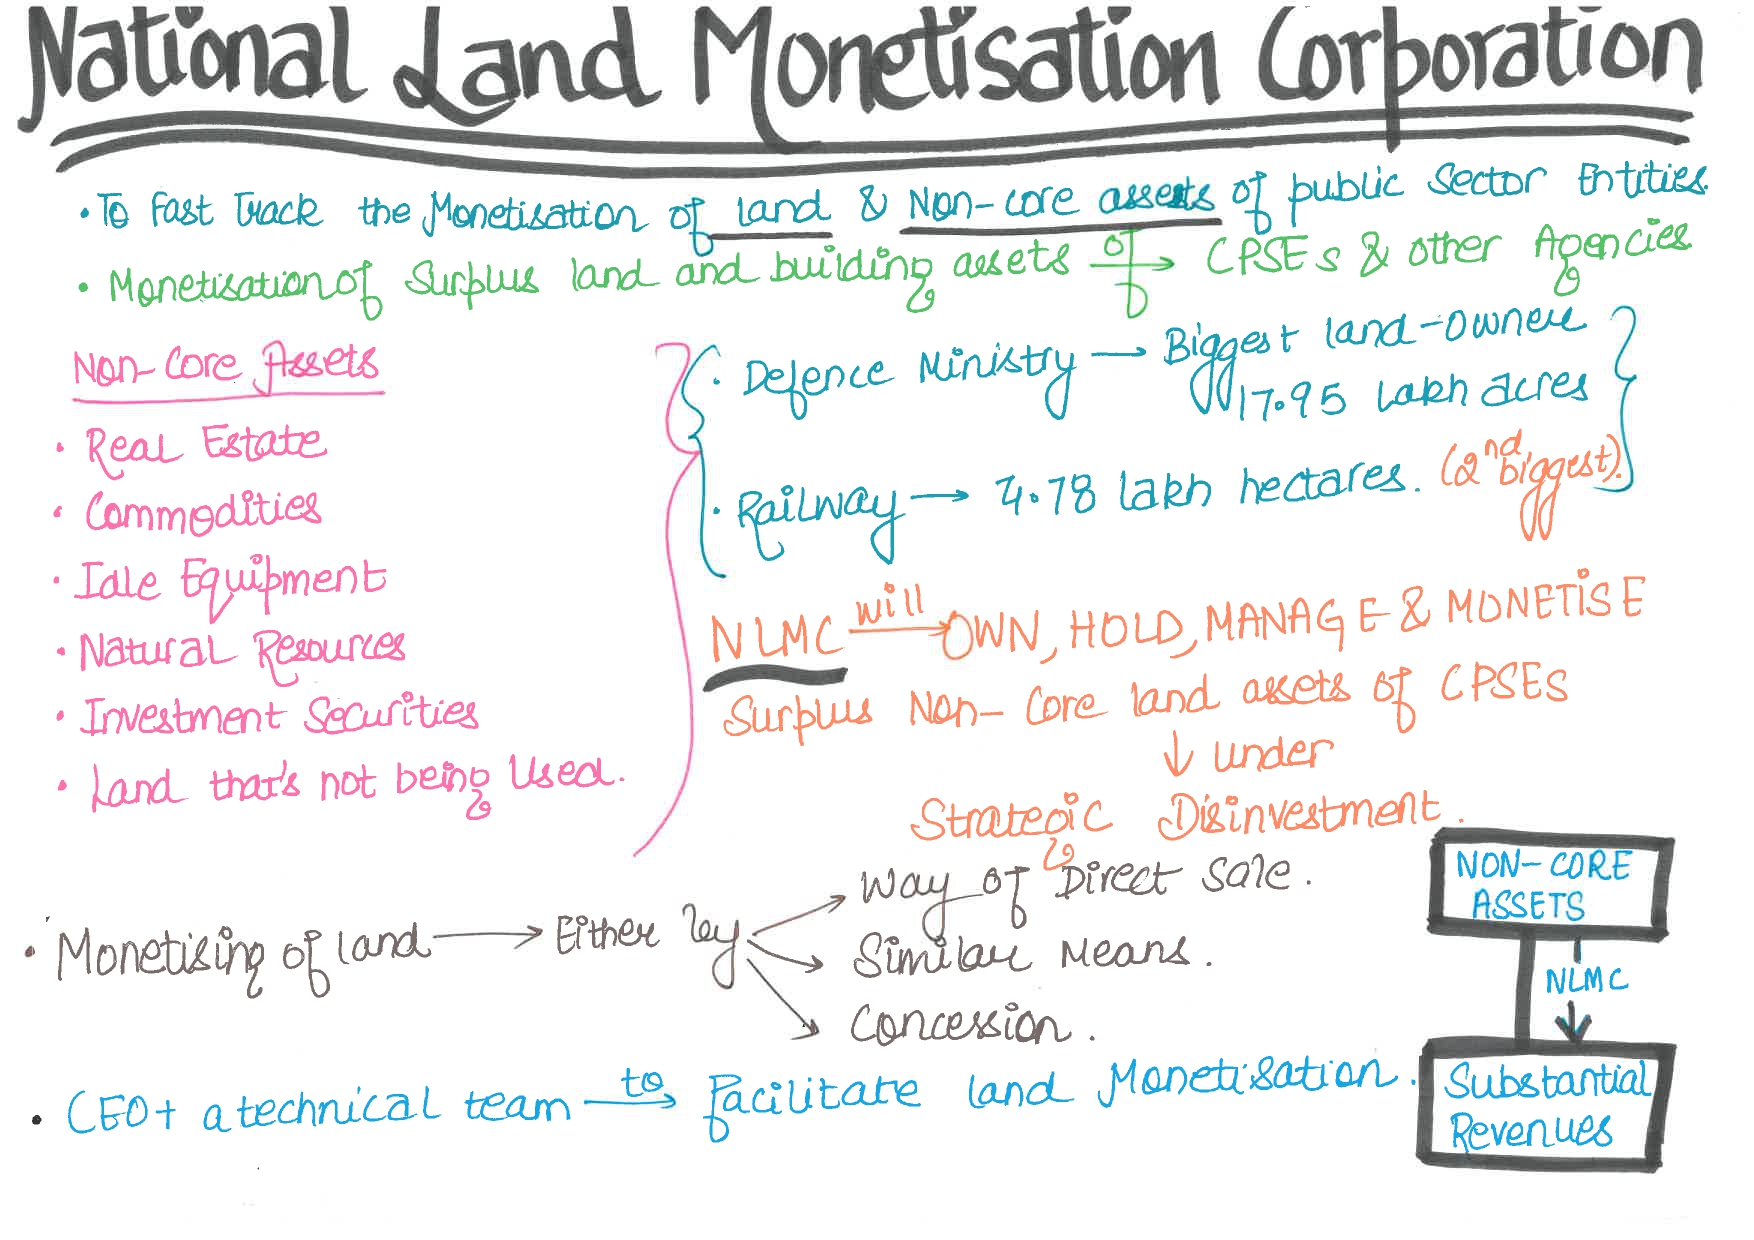 National Land Monetisation Corporation
• To Fast Track the Monetisation of land & Non-core assets of public Sector Entities.
• Monetisation of Surplus land and building assets of → CPSEs & other Agencies
Non-Core Assets
• Real Estate
• Commodities
• Idle Equipment
• Natural Resources
• Investment Securities
• Land that's not being Used.
• Defence Ministry → Biggest land-owner
17.95 lakh acres
• Railway → 4.78 lakh hectares. (2nd biggest).
NLMC will → OWN, HOLD, MANAGE & MONETISE
Surplus Non-Core land assets of CPSES
↓ under
Strategic Disinvestment.
• Monetising of land → Either by
→ Way of Direct Sale.
→ Similar Means.
→ Concession.
• CEO + a technical team to → Facilitate land Monetisation.
NON-CORE
ASSETS
NLMC
Substantial
Revenues